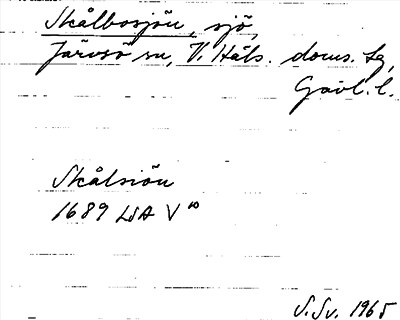 Skålbosjön, sjö,
Järvsö sn, V. Häls. doms. tg,
Gävl. l.
Skålsiön
1689 LSA V 10
S. Sv. 1965